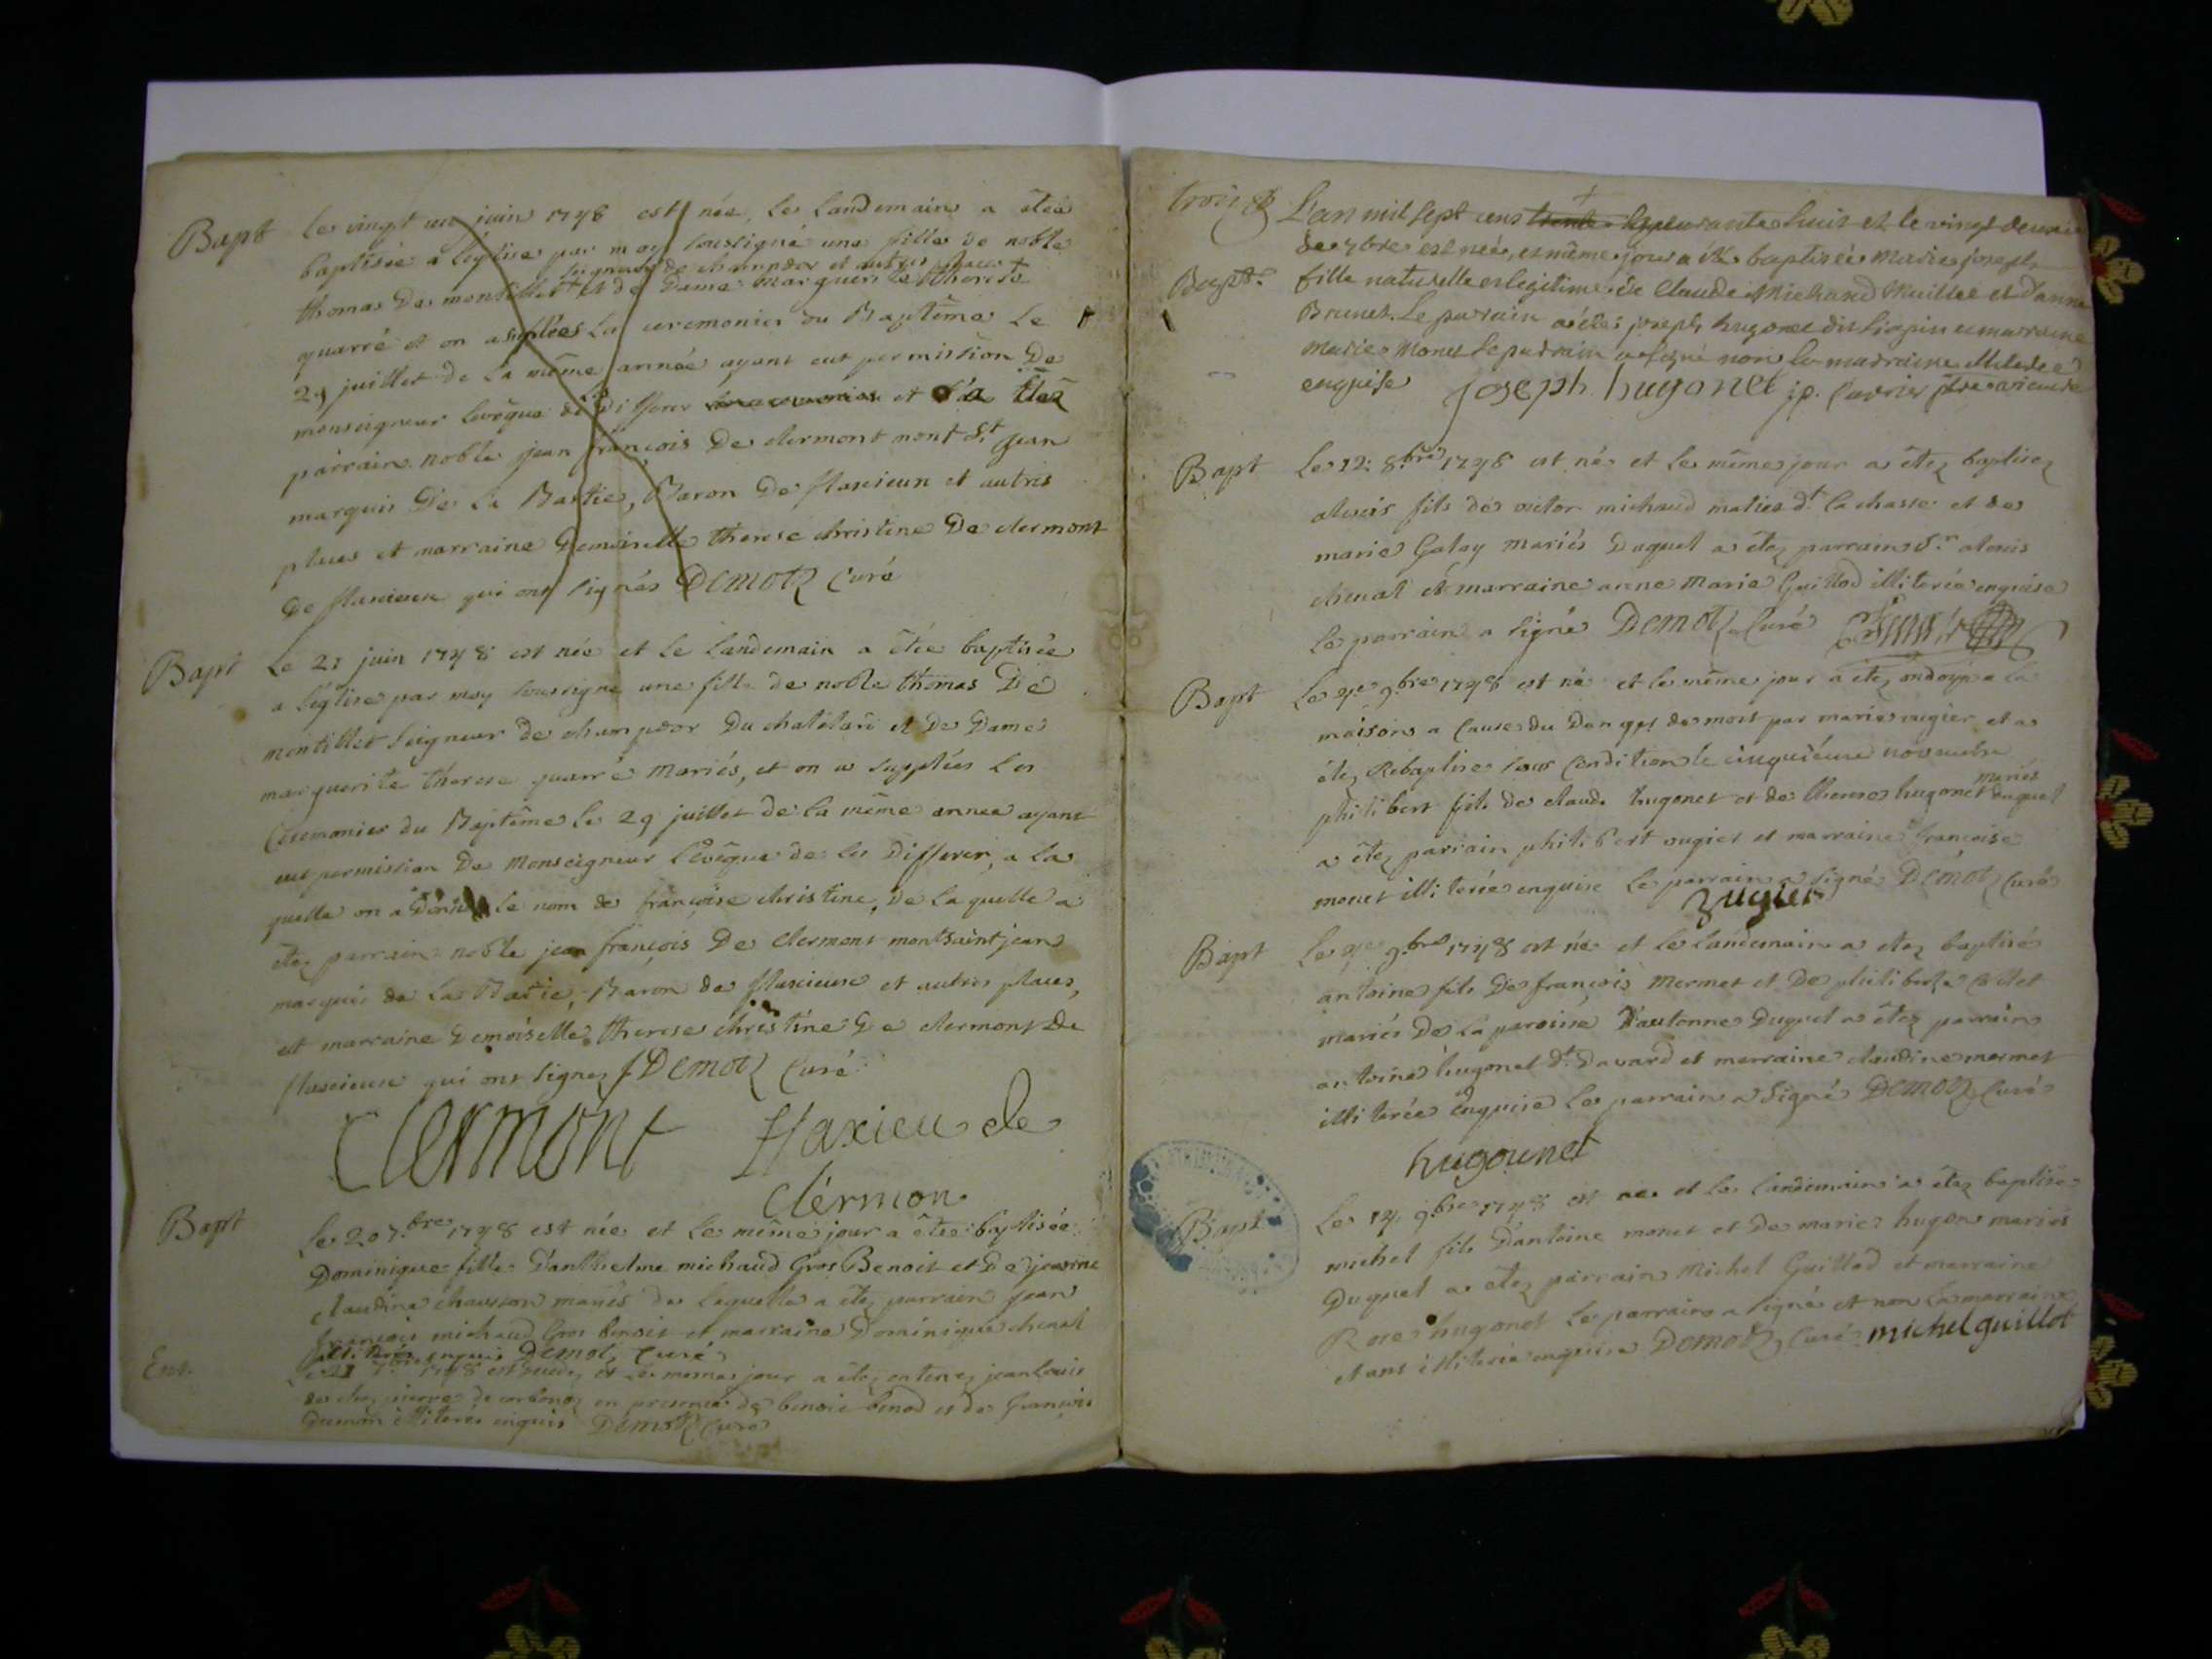 Bapt Le vingt un juin 1748 est née, le landemain a étée
baptisée a l'église par moy soussigné une fille de noble
seigneur de champdor et autres places +
thomas de montillet + et de dame marguerite therese
quarré et on a suplées les ceremonies du Baptême le
29 juillet de la même année ayant eut permission de
monseigneur levêque de differer les ceremonies et a étéz
parrain noble jean françois De clermont mont St jean
marquis De la Bastie, Baron De flaxieux et autres
places et marraine Demoiselle therese christine De clermont
De flaxieux qui ont signés Demotz Curé
Bapt Le 21 juin 1748 est née et le landemain a étée baptisée
a l'église par moy soussigné une fille de noble thomas De
montillet Seigneur de champdor Du chatelard et De Dame
marguerite therese quarré Mariés, et on a supplées les
Ceremonies du Baptême le 29 juillet de la même annee ayant
eut permission De Monseigneur l'evêque de les Differer, a la
quelle on a donné le nom de françoise christine, De la quelle a
étez parrain noble jean françois De clermont montsaintjean
marquis de la Batie, Baron de flaxieux et autres places,
et marraine Demoiselle therese christine De clermont De
flaxieux qui ont signez Demotz Curé
Clermont Flaxieu de
clérmon
Bapt Le 20 7.bre 1748 est née et le même jour a étée baptisée
Dominique fille D'anthelme michaud Gros Benoit et De jeanne
claudine chausson mariés de laquelle a étez parrain jean
françois michaud Gros benoit et marraine Dominique chenal
enquis Demotz Curé
Ent. Le 21 7.bre 1748 est et le meme jour a étez enterrez jean louis
en presence de benoit benod et de François
Dumon illiteres enquis Demotz Curé
trois
L'an mil sept cens trente quarante huit et le vingt deuxie
de 7bre est née, et même jour a été baptisée Marie joseph
Bapt. fille naturelle et legitime de Claude Michaud Muillet et d'anne
Brunet. Le parain a étés joseph hugonet dit et marraine
Marie Monet le parrain a signé non la marraine illiterée
enquise joseph hugonet j.p. Curvier ptre vicaire
Bapt Le 12: 8.bre 1748 est né et le même jour a étez baptisez
alexis fils de victor michaud maties d.t la chasse et de
marie Galay mariés Duquel a étez parrain S.r alexis
chenal et marraine anne Marie Guillod illiterée enquise
le parrain a signé Demotz Curé
Bapt Le 4e 9.bre 1748 est né et le même jour a étez ondoyé a la
maison a Cause du Danger de mort par marie augier et a
étez Rebaptisé sous Condition le cinquième novembre
mariés
philibert fils de claude hugonet et de therese hugonet duquel
a étez parrain philibert augier et marraine françoise
monet illiterée enquise le parrain a signé Demotz Curé
zugier
Bapt Le 4e 9.bre 1748 est né et le landemain a étez baptisé
antoine fils De françois Mermet et De philiberte Collet
mariés De la paroisse D'hautonne Duquel a étez parrain
antoine hugonet d.t Davard et marraine claudine mermet
illiterée enquise le parrain a signé Demotz Curé
hugounet
Bapt Le 14 9.bre 1748 est né et le landemain a étez baptisé
michel fils D'antoine monet et De marie hugon mariés
Duquel a étez parrain Michel Guillod et marraine
Rose hugonet le parrain a signé et non la marraine
etant illiterée enquise Demotz Curé michel guillot